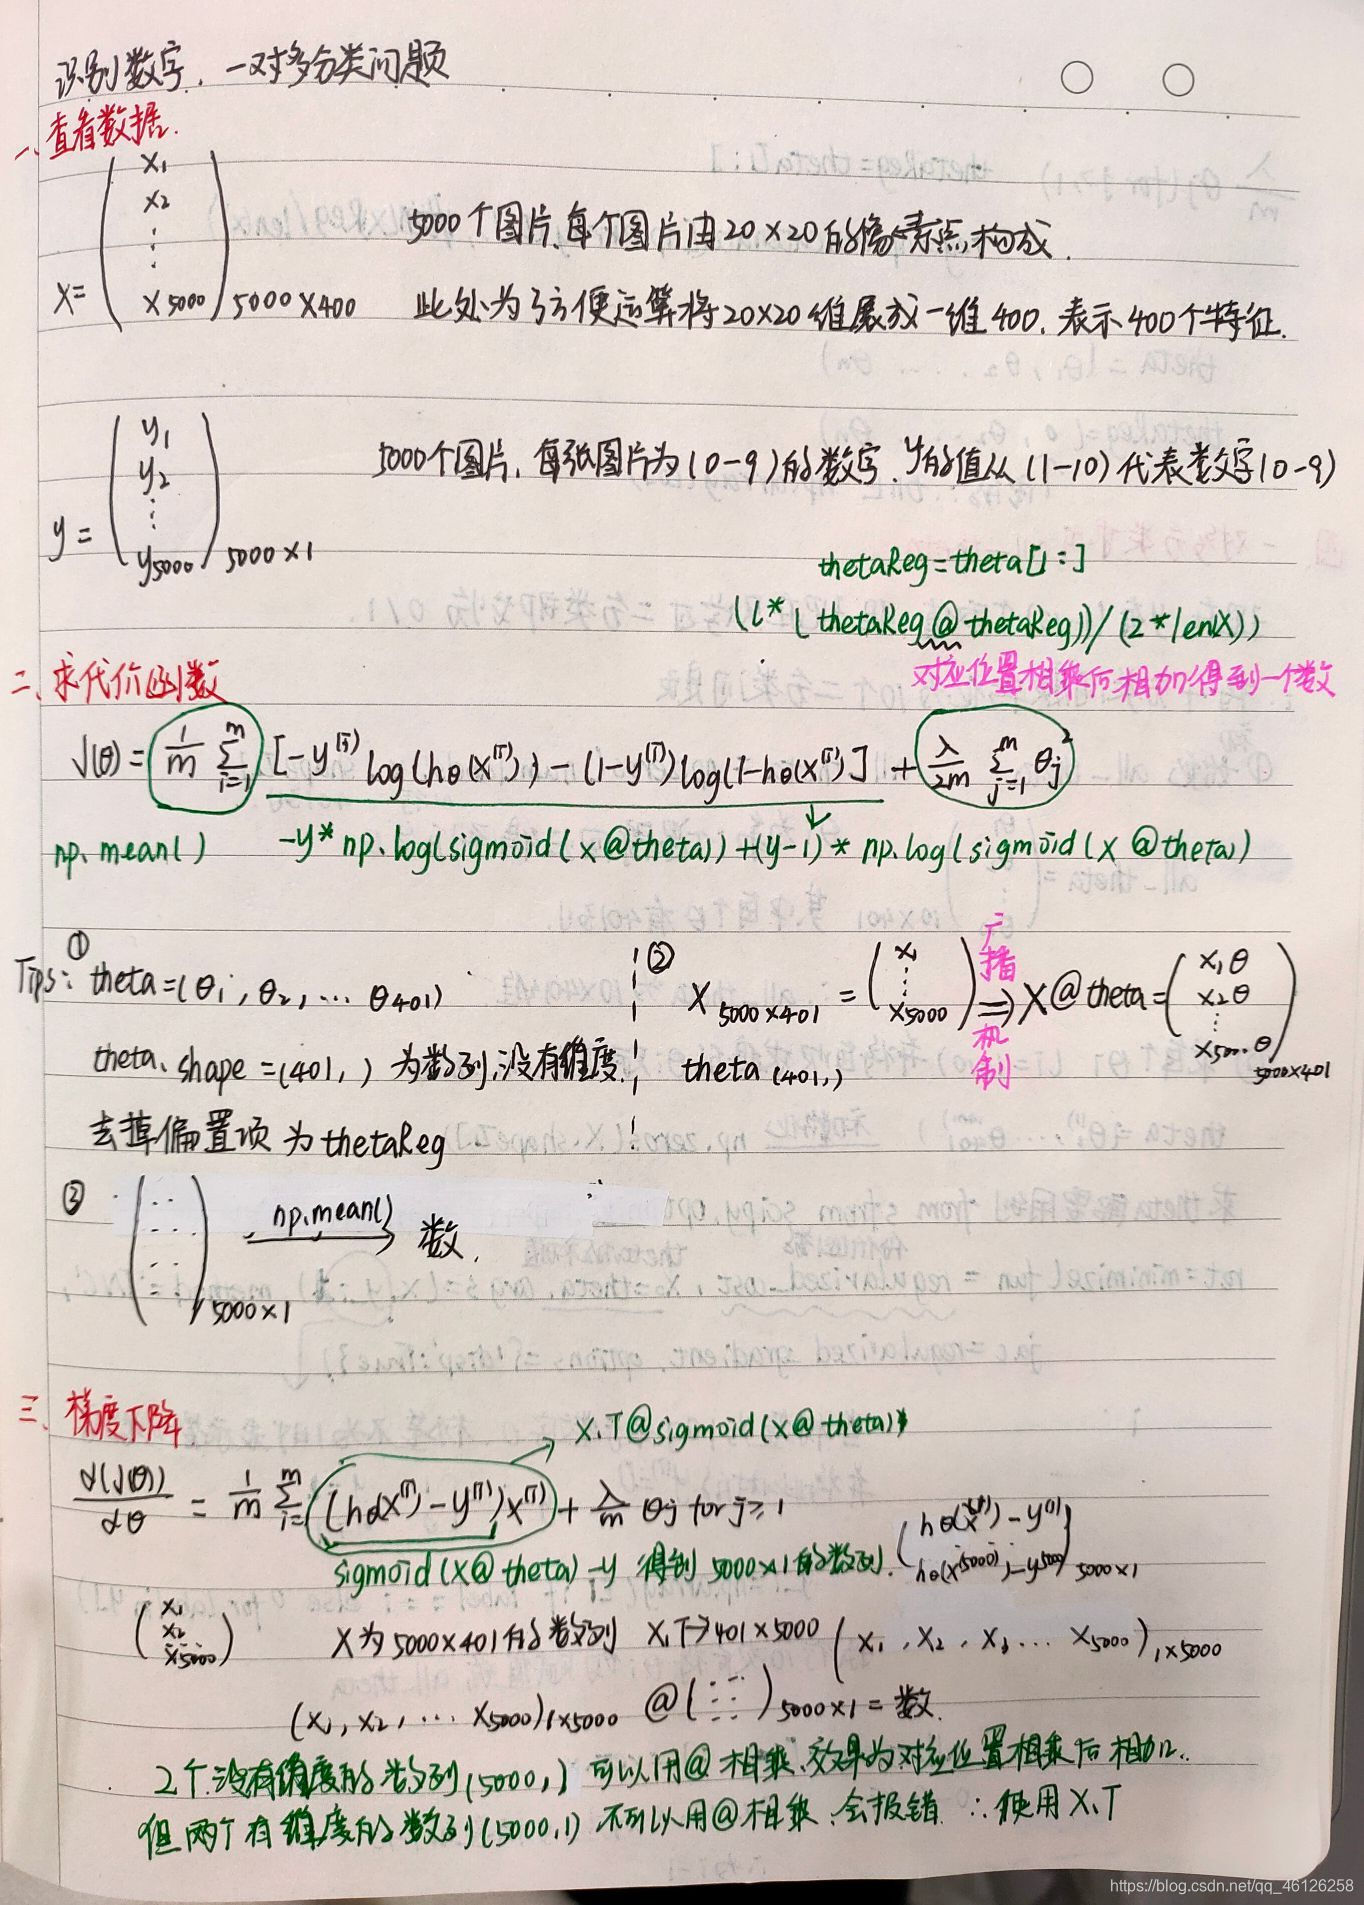 识别数字. 一对多分类问题
一、查看数据.
X = ( x1 x2 ⋮ x5000 ) 5000×400
5000个图片,每个图片由20×20的像素点构成.
此处为了方便运算将20×20维展成一维400. 表示400个特征.
y = ( y1 y2 ⋮ y5000 ) 5000×1
5000个图片, 每张图片为(0-9)的数字. y的值从(1-10)代表数字(0-9)
thetaReg=theta[1:]
(l*(thetaReg@thetaReg))/(2*len(X))
对应位置相乘后相加得到一个数
二、求代价函数
J(θ) = 1/m Σ_{i=1}^{m} [-y^(i) log(hθ(x^(i))) - (1-y^(i)) log(1-hθ(x^(i)))] + λ/2m Σ_{j=1}^{m} θj²
np.mean() -y* np.log(sigmoid(x@theta)) + (y-1) * np.log(sigmoid(x@theta)
Tips: ① theta=(θ1, θ2, … θ401)
theta.shape=(401,) 为数列,没有维度.
去掉偏置项为thetaReg
② X 5000×401 = ( x1 ⋮ x5000 ) ⇒ X@theta = ( x1θ x2θ ⋮ x500.θ ) 5000×401
广播机制
theta (401,)
③ ( ) 5000×1 np.mean() 数.
三、梯度下降
X.T@sigmoid(x@theta)
d(J(θ))/dθ = 1/m Σ_{i=}^{m} (hθ(x^(i)) - y^(i)) x^(i) + λ/m θj for j≥1
sigmoid(x@theta)-y 得到 5000×1的数列. ( hθ(x^(1)) - y^(1) hθ(x^(5000)) - y^5000 ) 5000×1
( x1 x2 x5000 ) X为5000×401的数列 X.T→401×5000 ( x1, x2, x3 … x5000 ) 1×5000
(x1, x2, … x5000) 1×5000 @ ( ) 5000×1 = 数.
2个没有维度的数列(5000,) 可以用@相乘.效果为对应位置相乘后相加.
但两个有维度的数列(5000,1) 不可以用@相乘.会报错 ∴使用X.T
https://blog.csdn.net/qq_46126258